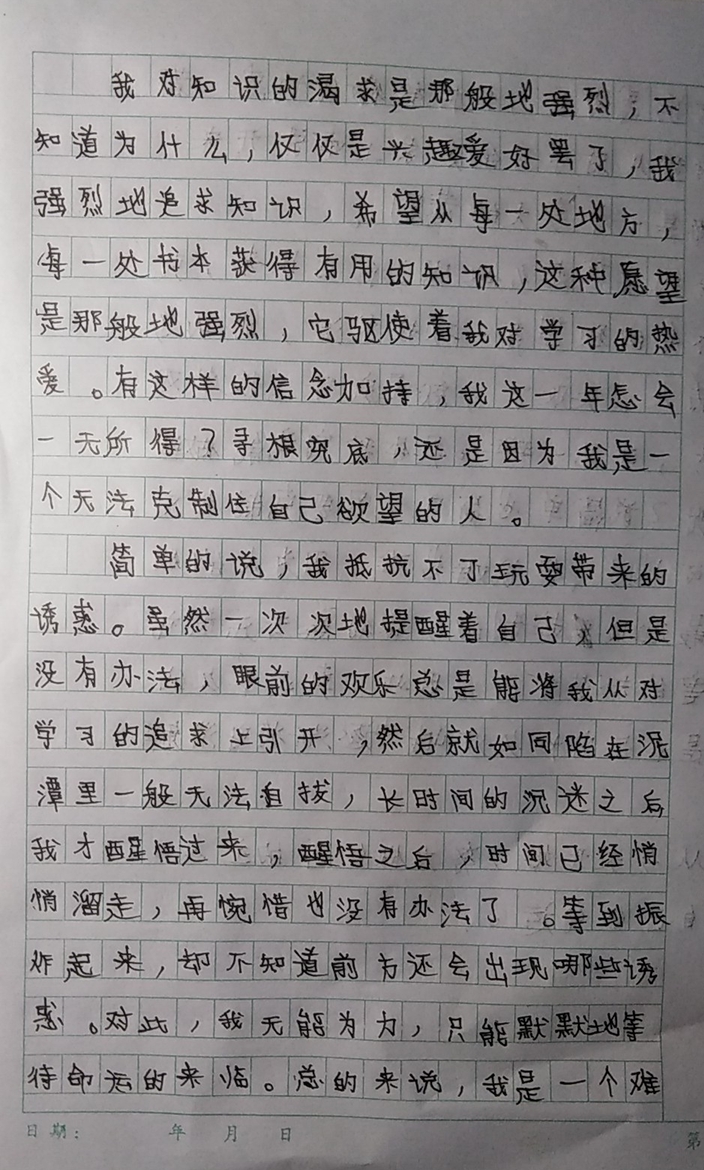 我对知识的渴求是那般地强烈，不
知道为什么，仅仅是兴趣爱好罢了，我
强烈地追求知识，希望从每一处地方，
每一处书本获得有用的知识，这种愿望
是那般地强烈，它驱使着我对学习的热
爱。有这样的信念加持，我这一年怎会
一无所得？寻根究底，还是因为我是一
个无法克制住自己欲望的人。
简单的说，我抵抗不了玩耍带来的
诱惑。虽然一次次地提醒着自己，但是
没有办法，眼前的欢乐总是能将我从对
学习的追求上引开，然后就如同陷在泥
潭里一般无法自拔，长时间的沉迷之后
我才醒悟过来，醒悟之后，时间已经悄
悄溜走，再惋惜也没有办法了。等到振
作起来，却不知道前方还会出现哪些诱
惑。对此，我无能为力，只能默默地等
待命运的来临。总的来说，我是一个难
日期： 年 月 日
第